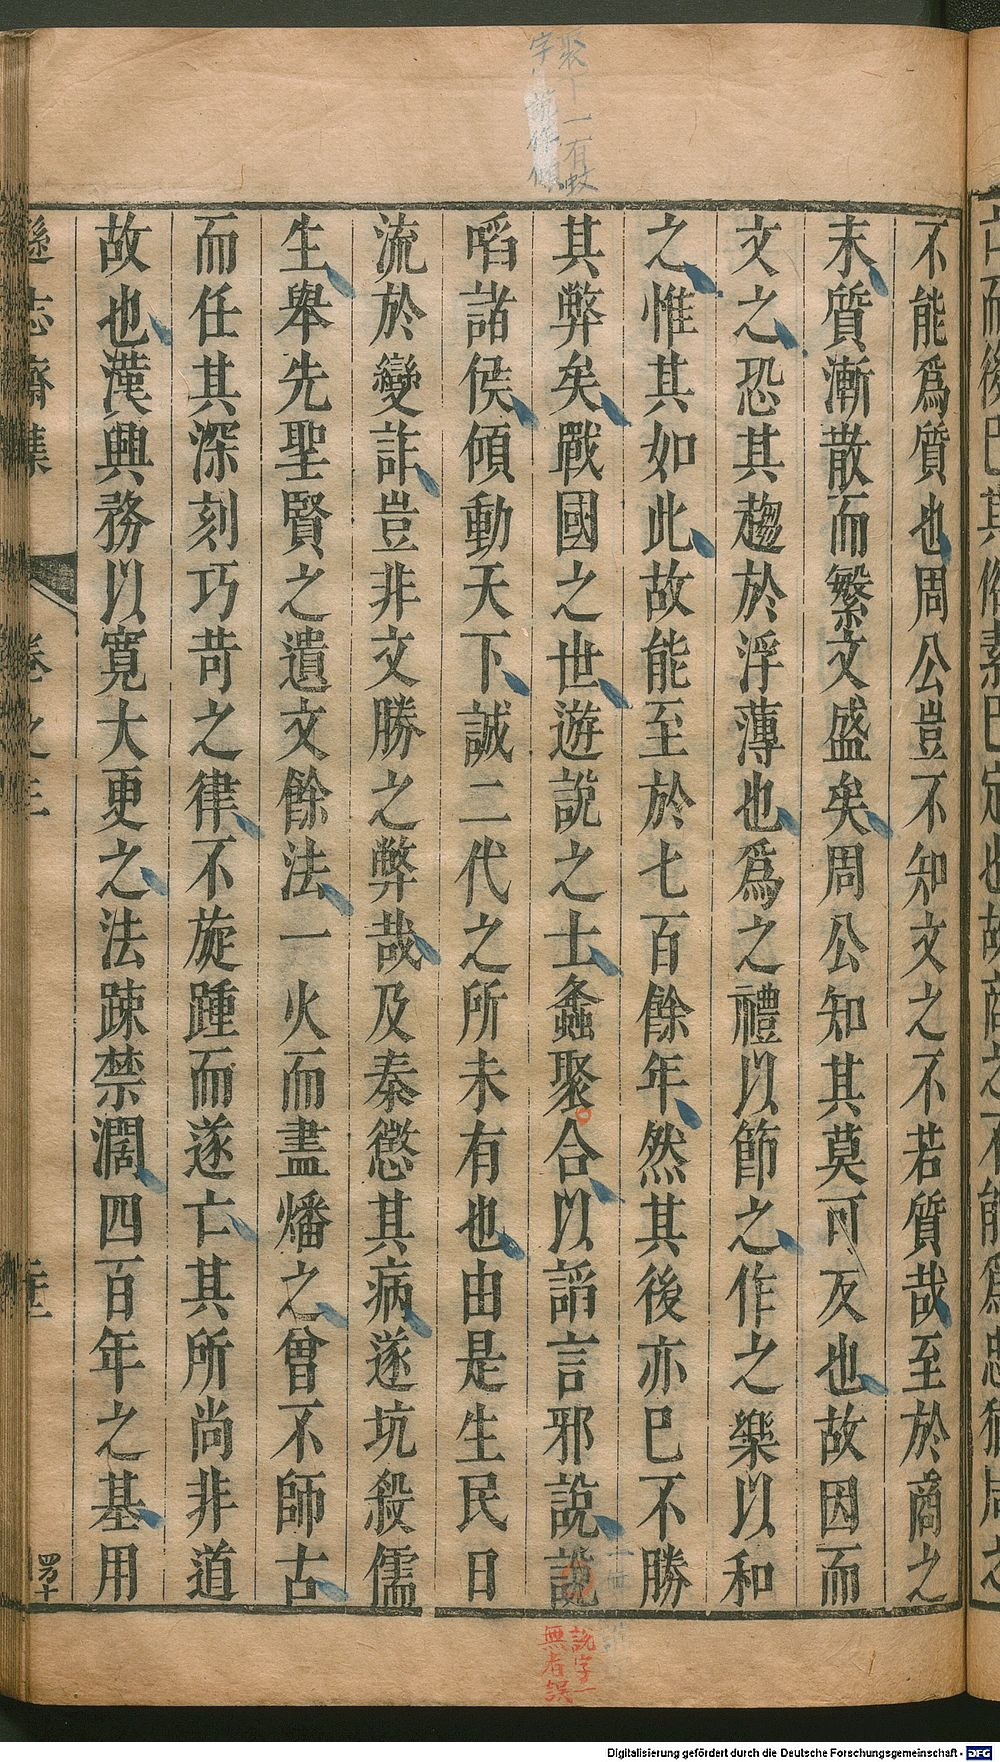 聚下一有蚊
字
不能爲質也周公豈不知文之不若質哉至於商之
末質漸散而繁文盛矣周公知其莫可反也故因而
文之恐其趨於浮薄也爲之禮以節之作之樂以和
之惟其如此故能至於七百餘年然其後亦巳不勝
其弊矣戰國之世遊說之士螽聚合以謟言邪說說
啗諸侯傾動天下誠二代之所未有也由是生民日
流於變詐豈非文勝之弊哉及秦懲其病遂坑殺儒
生舉先聖賢之遺文餘法一火而盡燔之曾不師古
而任其深刻巧苛之律不旋踵而遂亡其所尚非道
故也漢興務以寬大更之法踈禁濶四百年之基用
說字一
無者誤
遜志齋集
卷之三
Digitalisierung gefördert durch die Deutsche Forschungsgemeinschaft - DFG